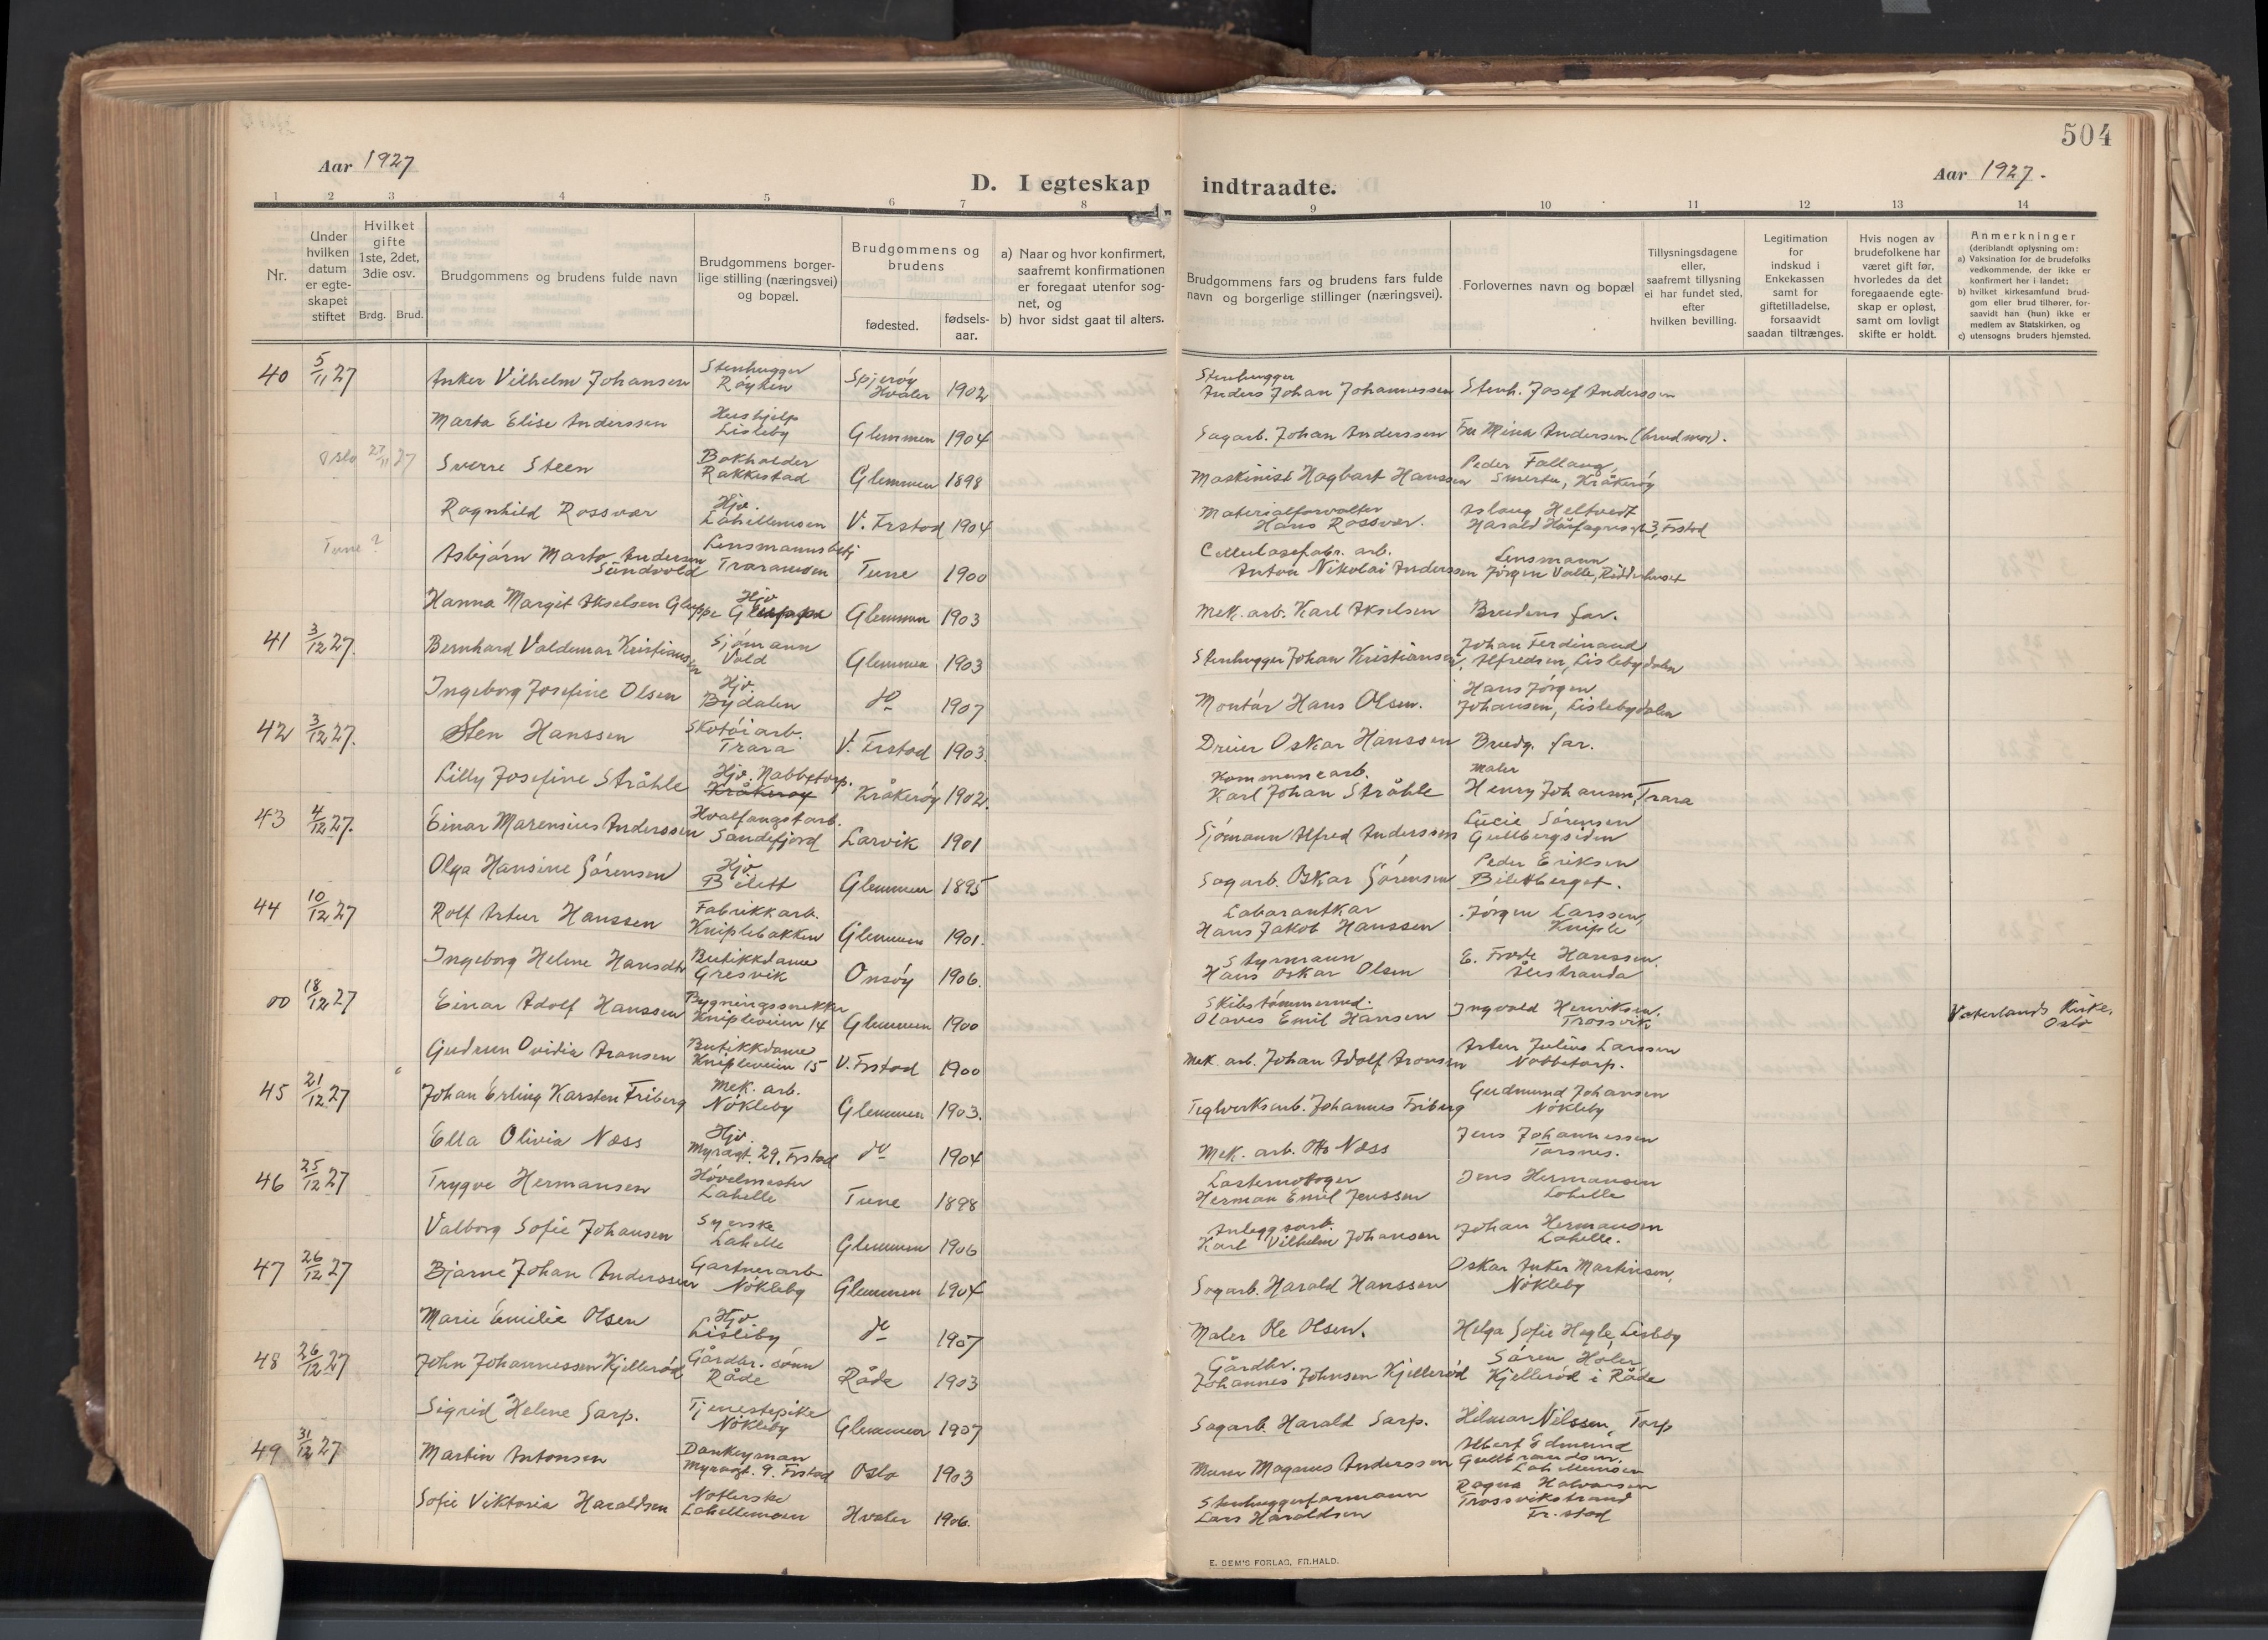 504
Aar 1927
D. I egteskap indtraadte.
Aar 1927.
1 2 3 4 5 6 7 8 9 10 11 12 13 14
Nr.
Under hvilken datum er egte-skapet stiftet
Hvilket gifte 1ste, 2det, 3die osv.
Brdg. Brud.
Brudgommens og brudens fulde navn
Brudgommens borger-lige stilling (næringsvei) og bopæl.
Brudgommens og brudens
fødested. fødsels-aar.
a) Naar og hvor konfirmert, saafremt konfirmationen er foregaat utenfor sog-net, og
b) hvor sidst gaat til alters.
Brudgommens fars og brudens fars fulde navn og borgerlige stillinger (næringsvei).
Forlovernes navn og bopæl
Tillysningsdagene eller, saafremt tillysning ei har fundet sted, efter hvilken bevilling.
Legitimation for indskud i Enkekassen samt for giftetilladelse, forsaavidt saadan tiltrænges.
Hvis nogen av brudefolkene har været gift før, hvorledes da det foregaaende egte-skap er opløst, samt om lovligt skifte er holdt.
Anmerkninger
(deriblandt oplysning om:
a) Vaksination for de brudefolks vedkommende, der ikke er konfirmert her i landet;
b) hvilket kirkesamfund brud-gom eller brud tilhører, for-saavidt han (hun) ikke er medlem av Statskirken, og
c) utensogns bruders hjemsted.
40 5/11 27 Anker Vilhelm Johansen Stenhugger Røyken Spjerøy Hvaler 1902 Stenhugger Anders Johan Johannessen Stenh. Josef Anderssen
Marta Elise Anderssen Hushjelp Lisleby Glemmen 1904 Sagarb. Johan Anderssen Fru Mina Andersen (brud mor).
Oslo 27/11 27 Sverre Steen Bokholder Rakkestad Glemmen 1898 Maskinist Hagbart Hanssen Peder Fallang, Smertu, Kråkerøy
Ragnhild Rossvær Hjv. Lahellemoen V. Frstad 1904 Materialforvalter Hans Rossvær. Aslaug Heltvedt Harald Hårfagresgt 3, Frstad
Tune? Asbjørn Marto Andersen Sundvold Lensmannsbetj Traramoen Tune 1900 Cellulosefabr. arb. Anton Nikolai Anderssen Lensmann Jørgen Valle,
Hanna Margit Akselsen Gluppe Hjv Glemmen 1903 Mek. arb. Karl Akselsen Brudens far.
41 3/12 27. Bernhard Valdemar Kristiansen Sjømann Vold Glemmen 1903 Stenhugger Johan Kristiansen, Johan Ferdinand Alfredsen, Lislebydalen
Ingeborg Josefine Olsen Hjv. Bydalen do 1907 Montør Hans Olsen. Hans Jørgen Johansen, Lislebydalen
42 3/12 27. Sten Hanssen Skotøiarb. Trara V. Frstad 1903. Dreier Oskar Hanssen Brudg. far.
Lilly Josefine Ståhle Hjv. Nabbetorp. Kråkerøy Kråkerøy 1902. Kommunearb. Karl Johan Ståhle Maler Henry Johansen, Trara
43 4/12 27. Einar Marensius Anderssen Hvalfangstarb. Sandefjord Larvik 1901 Sjømann Alfred Anderssen Lucie Sørensen Gullbergsiden
Olga Hansine Sørensen Hjv. Bilett Glemmen 1895 Sagarb. Oskar Sørensen Peder Eriksen Biletberget.
44 10/12 27 Rolf Artur Hanssen Fabrikkarb. Kniplebakken Glemmen 1901. Labarantkar Hans Jakob Hanssen Jørgen Larssen, Kniple
Ingeborg Helene Hansdtr Butikkdame Gresvik Onsøy 1906. Styrmann Hans Oskar Olsen E. Frode Hanssen. Ålestranda
00 18/12 27 Einar Adolf Hanssen Bygningssnekker Knipleveien 14 Glemmen 1900 Skibstømmermd. Olaves Emil Hansen Ingvald Henriksen. Trossvik Vaterlands Kirke, Oslo
Gudrun Ovidia Aronsen Butikkdame Knipleveien 15 V. Frstad 1900 Mek. arb. Johan Adolf Aronsen Artur Julius Larssen Nabbetorp.
45 21/12 27 Johan Erling Karsten Friberg Mek. arb. Nøkleby Glemmen 1903. Teglverksarb. Johannes Friberg Gudmund Johansen Nøkleby
Ella Olivia Næss Hjv. Myragt. 29, Frstad do 1904 Mek. arb. Otto Næss Jens Johannessen Torsnes.
46 25/12 27 Trygve Hermansen Høvelmester Lahelle Tune 1898 Herman Emil Jenssen Jens Hermansen Lahelle
Valborg Sofie Johansen Syerske Lahelle Glemmen 1906 Anleggsarb. Karl Vilhelm Johansen Johan Hermansen Lahelle.
47 26/12 27 Bjarne Johan Anderssen Gartnerarb Nøkleby Glemmen 1904 Sagarb. Harald Hanssen Oskar Anker Martinsen, Nøkleby
Marie Emilie Olsen Hjv Lisleby do 1907 Maler Ole Olsen. Helga Sofie Hegle, Lisleby
48 26/12 27 John Johannessen Kjellerød Gårdbr. sønn Råde Råde 1903 Gårdbr. Johannes Johnsen Kjellerød Søren Holer Kjellerød i Råde
Sigrid Helene Sarp. Tjenestepike Nøkleby Glemmen 1907 Sagarb. Harald Sarp. Hilmar Nilssen, Torp
49 31/12 27 Martin Antonsen Donkeyman Myragt. 9. Frstad Oslo 1903 Murer Magnus Anderssen Albert Edmund Gulbrandsen, Lahellemoen
Sofie Viktoria Haraldsen Notlerske Lahellemoen Hvaler 1906. Stenhuggerformann Lars Haraldsen Ragna Halvorsen Trossvikstrand Fr.stad
E. SEM'S FORLAG, FR.HALD.